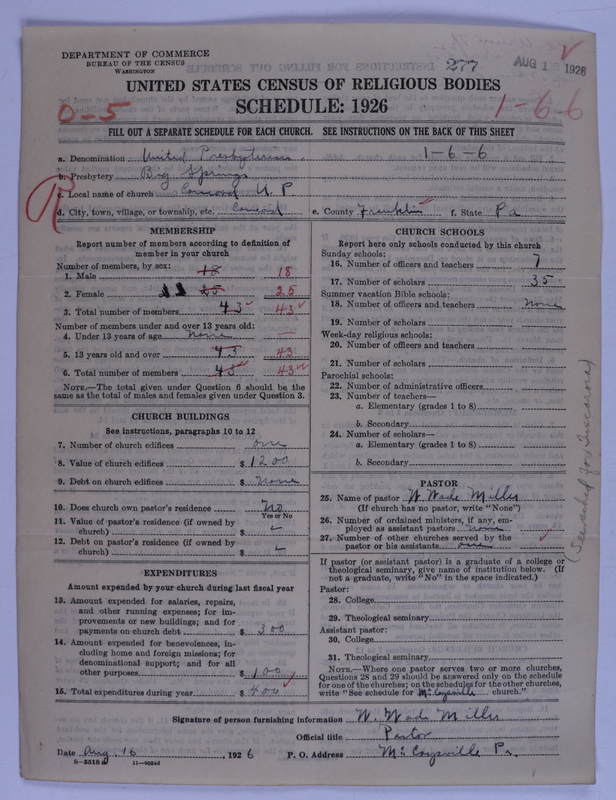 DEPARTMENT OF COMMERCE
BUREAU OF THE CENSUS
WASHINGTON
277
AUG 1 1926
UNITED STATES CENSUS OF RELIGIOUS BODIES
SCHEDULE: 1926
0-5
1-6-6
FILL OUT A SEPARATE SCHEDULE FOR EACH CHURCH. SEE INSTRUCTIONS ON THE BACK OF THIS SHEET
a. Denomination United Presbyterian 1-6-6
b. Presbytery Big Springs
c. Local name of church Concord U. P
d. City, town, village, or township, etc. Concord e. County Franklin f. State Pa
MEMBERSHIP
Report number of members according to definition of
member in your church
Number of members, by sex:
1. Male 18 18
2. Female 25 25
3. Total number of members 43 43
Number of members under and over 13 years old:
4. Under 13 years of age none —
5. 13 years old and over 43 43
6. Total number of members 43 43
NOTE.—The total given under Question 6 should be the
same as the total of males and females given under Question 3.
CHURCH BUILDINGS
See instructions, paragraphs 10 to 12
7. Number of church edifices one
8. Value of church edifices $ 1200
9. Debt on church edifices $ none
10. Does church own pastor's residence No
Yes or No
11. Value of pastor's residence (if owned by
church) $
12. Debt on pastor's residence (if owned by
church) $
EXPENDITURES
Amount expended by your church during last fiscal year
13. Amount expended for salaries, repairs,
and other running expenses; for im-
provements or new buildings; and for
payments on church debt $ 300
14. Amount expended for benevolences, in-
cluding home and foreign missions; for
denominational support; and for all
other purposes $ 100
15. Total expenditures during year $ 400
CHURCH SCHOOLS
Report here only schools conducted by this church
Sunday schools:
16. Number of officers and teachers 7
17. Number of scholars 35
Summer vacation Bible schools:
18. Number of officers and teachers none
19. Number of scholars
Week-day religious schools:
20. Number of officers and teachers
21. Number of scholars
Parochial schools:
22. Number of administrative officers
23. Number of teachers—
a. Elementary (grades 1 to 8)
b. Secondary
24. Number of scholars—
a. Elementary (grades 1 to 8)
b. Secondary
PASTOR
25. Name of pastor W. Wade Miller
(If church has no pastor, write "None")
26. Number of ordained ministers, if any, em-
ployed as assistant pastors none
27. Number of other churches served by the
pastor or his assistants one
If pastor (or assistant pastor) is a graduate of a college or
theological seminary, give name of institution below. (If
not a graduate, write "No" in the space indicated.)
Pastor:
28. College
29. Theological seminary
Assistant pastor:
30. College
31. Theological seminary
NOTE.—Where one pastor serves two or more churches,
Questions 28 and 29 should be answered only on the schedule
for one of the churches; on the schedules for the other churches,
write "See schedule for McCoysville church."
(See sched for Tuscarora)
Signature of person furnishing information W. Wade Miller
Official title Pastor
Date Aug. 16, 1926 P. O. Address McCoysville Pa.
8-5518 11-9034d